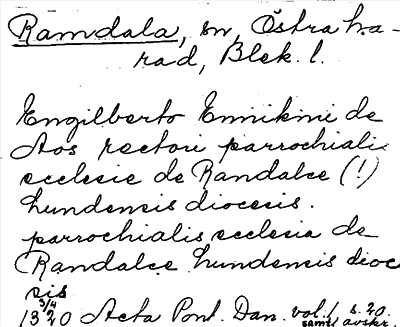 Ramdala, sn, Östra hä-
rad, Blek. l.
Engilberto Ennikini de
Aos rectori parrochialis
ecclesie de Randalce (!)
lundensis diocesis.
parrochialis ecclesia de
Randalce lundensis dioce
sis
3/4
1320 Acta Pont. Dan. vol. 1 s. 20.
samt avskr.